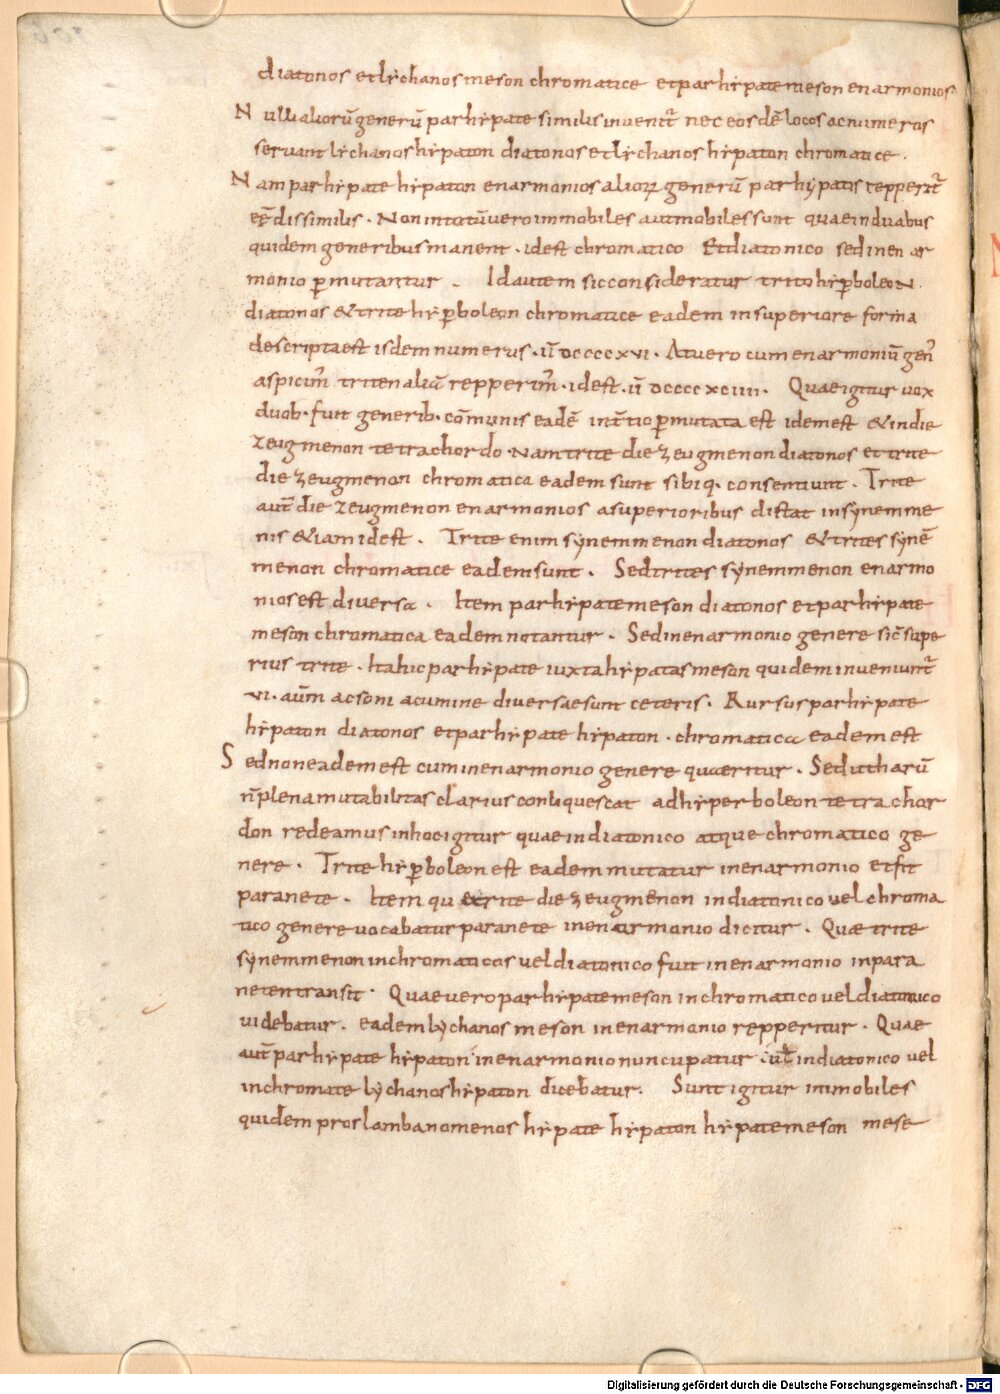 diatonos et lẏchanos meson chromatice et parhẏpate meson enarmonios
Nulli aliorū generū parhẏpate similis invenit̄ nec eosdē locos ac numeros
servant lẏchanos hẏpaton diatonos et lẏchanos hẏpaton chromatice.
Nam parhẏpate hẏpaton enarmonios alioꝝ generū parhẏpatis repperit̄
eē dissimilis. Non in totū vero immobiles aut mobiles sunt quae in duabus
quidem generibus manent. id est chromatico Et diatonico sed in enar
monio ꝑmutantur. Id autem sic consideratur trito hẏꝑboleon.
diatonos & trite hẏꝑboleon chromatice eadem in superiore forma
descripta est isdem numerus. īī dccccxvi. At vero cum enarmoniū gen̄
aspicim̄ triten aliā repperim̄. id est. īī dccccxciiii. Quae igitur vox
duob. fuit generib. cōmunis eadē in t̄tio ꝑmutata est idem est & in die
zeugmenon tetrachordo. Nam trite diezeugmenon diatonos et trite
diezeugmenon chromatica eadem sunt sibiq. consentiunt. Trite
aut̄ diezeugmenon enarmonios a superioribus distat in sẏnemme
nis & iam id est. Trite enim sẏnemmenon diatonos & trites sẏnē
menon chromatice eadem sunt. Sed trites sẏnemmenon enarmo
nios est diversa. Item parhẏpate meson diatonos et parhẏpate
meson chromatica eadem notantur. Sed in enarmonio genere sic̄ supe
rius trite. Ita hic parhẏpate iuxta hẏpatas meson quidem inveniunt̄
vi. aūm ac soni acumine diversae sunt ceteris. Rursus parhẏpate
hẏpaton diatonos et parhẏpate hẏpaton. chromatica eadem est
Sed non eadem est cum in enarmonio genere quaeritur. Sed ut harū
n̄ plena mutabilitas clarius conliquescat ad hẏperboleon tetrachor
don redeamus in hoc igitur quae in diatonico atque chromatico ge
nere. Trite hẏꝑboleon est eadem mutatur in enarmonio et fit
paranete. Item qu trite diezeugmenon in diatonico vel chroma
tico genere vocabatur paranete in enarmonio dicitur. Quae trite
sẏnemmenon in chromaticos vel diatonico fuit in enarmonio in para
neten transit. Quae vero parhẏpate meson in chromatico vel diatonico
videbatur. eadem lẏchanos meson in enarmonio repperitur. Quae
aut̄ parhẏpate hẏpaton in enarmonio nuncupatur in diatonico vel
in chromate lẏchanos hẏpaton dicebatur. Sunt igitur immobiles
quidem proslambanomenos hẏpate hẏpaton hẏpate meson mese
Digitalisierung gefördert durch die Deutsche Forschungsgemeinschaft - DFG